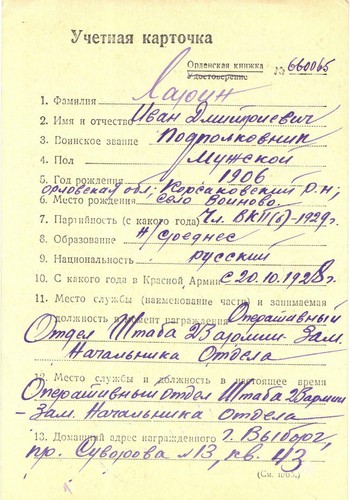 Учетная карточка
Орденская книжка
Удостоверение № 660065
1. Фамилия Ларин
2. Имя и отчество Иван Дмитриевич
3. Воинское звание Подполковник
4. Пол Мужской
5. Год рождения 1906
Орловская обл; Корсаковский р-н;
6. Место рождения село Воиново.
7. Партийность (с какого года) Чл. ВКП(б)-1929г.
8. Образование н/среднее
9. Национальность русский
10. С какого года в Красной Армии с 20.10.1928г.
11. Место службы (наименование части) и занимаемая
должность в момент награждения Оперативный
Отдел Штаба 23 армии. Зам.
Начальника Отдела
12. Место службы и должность в настоящее время
Оперативный отдел Штаба 23 армии
- Зам. Начальника отдела
13. Домашний адрес награжденного г. Выборг,
пр. Суворова №13, кв. 43
(См. н/об.)